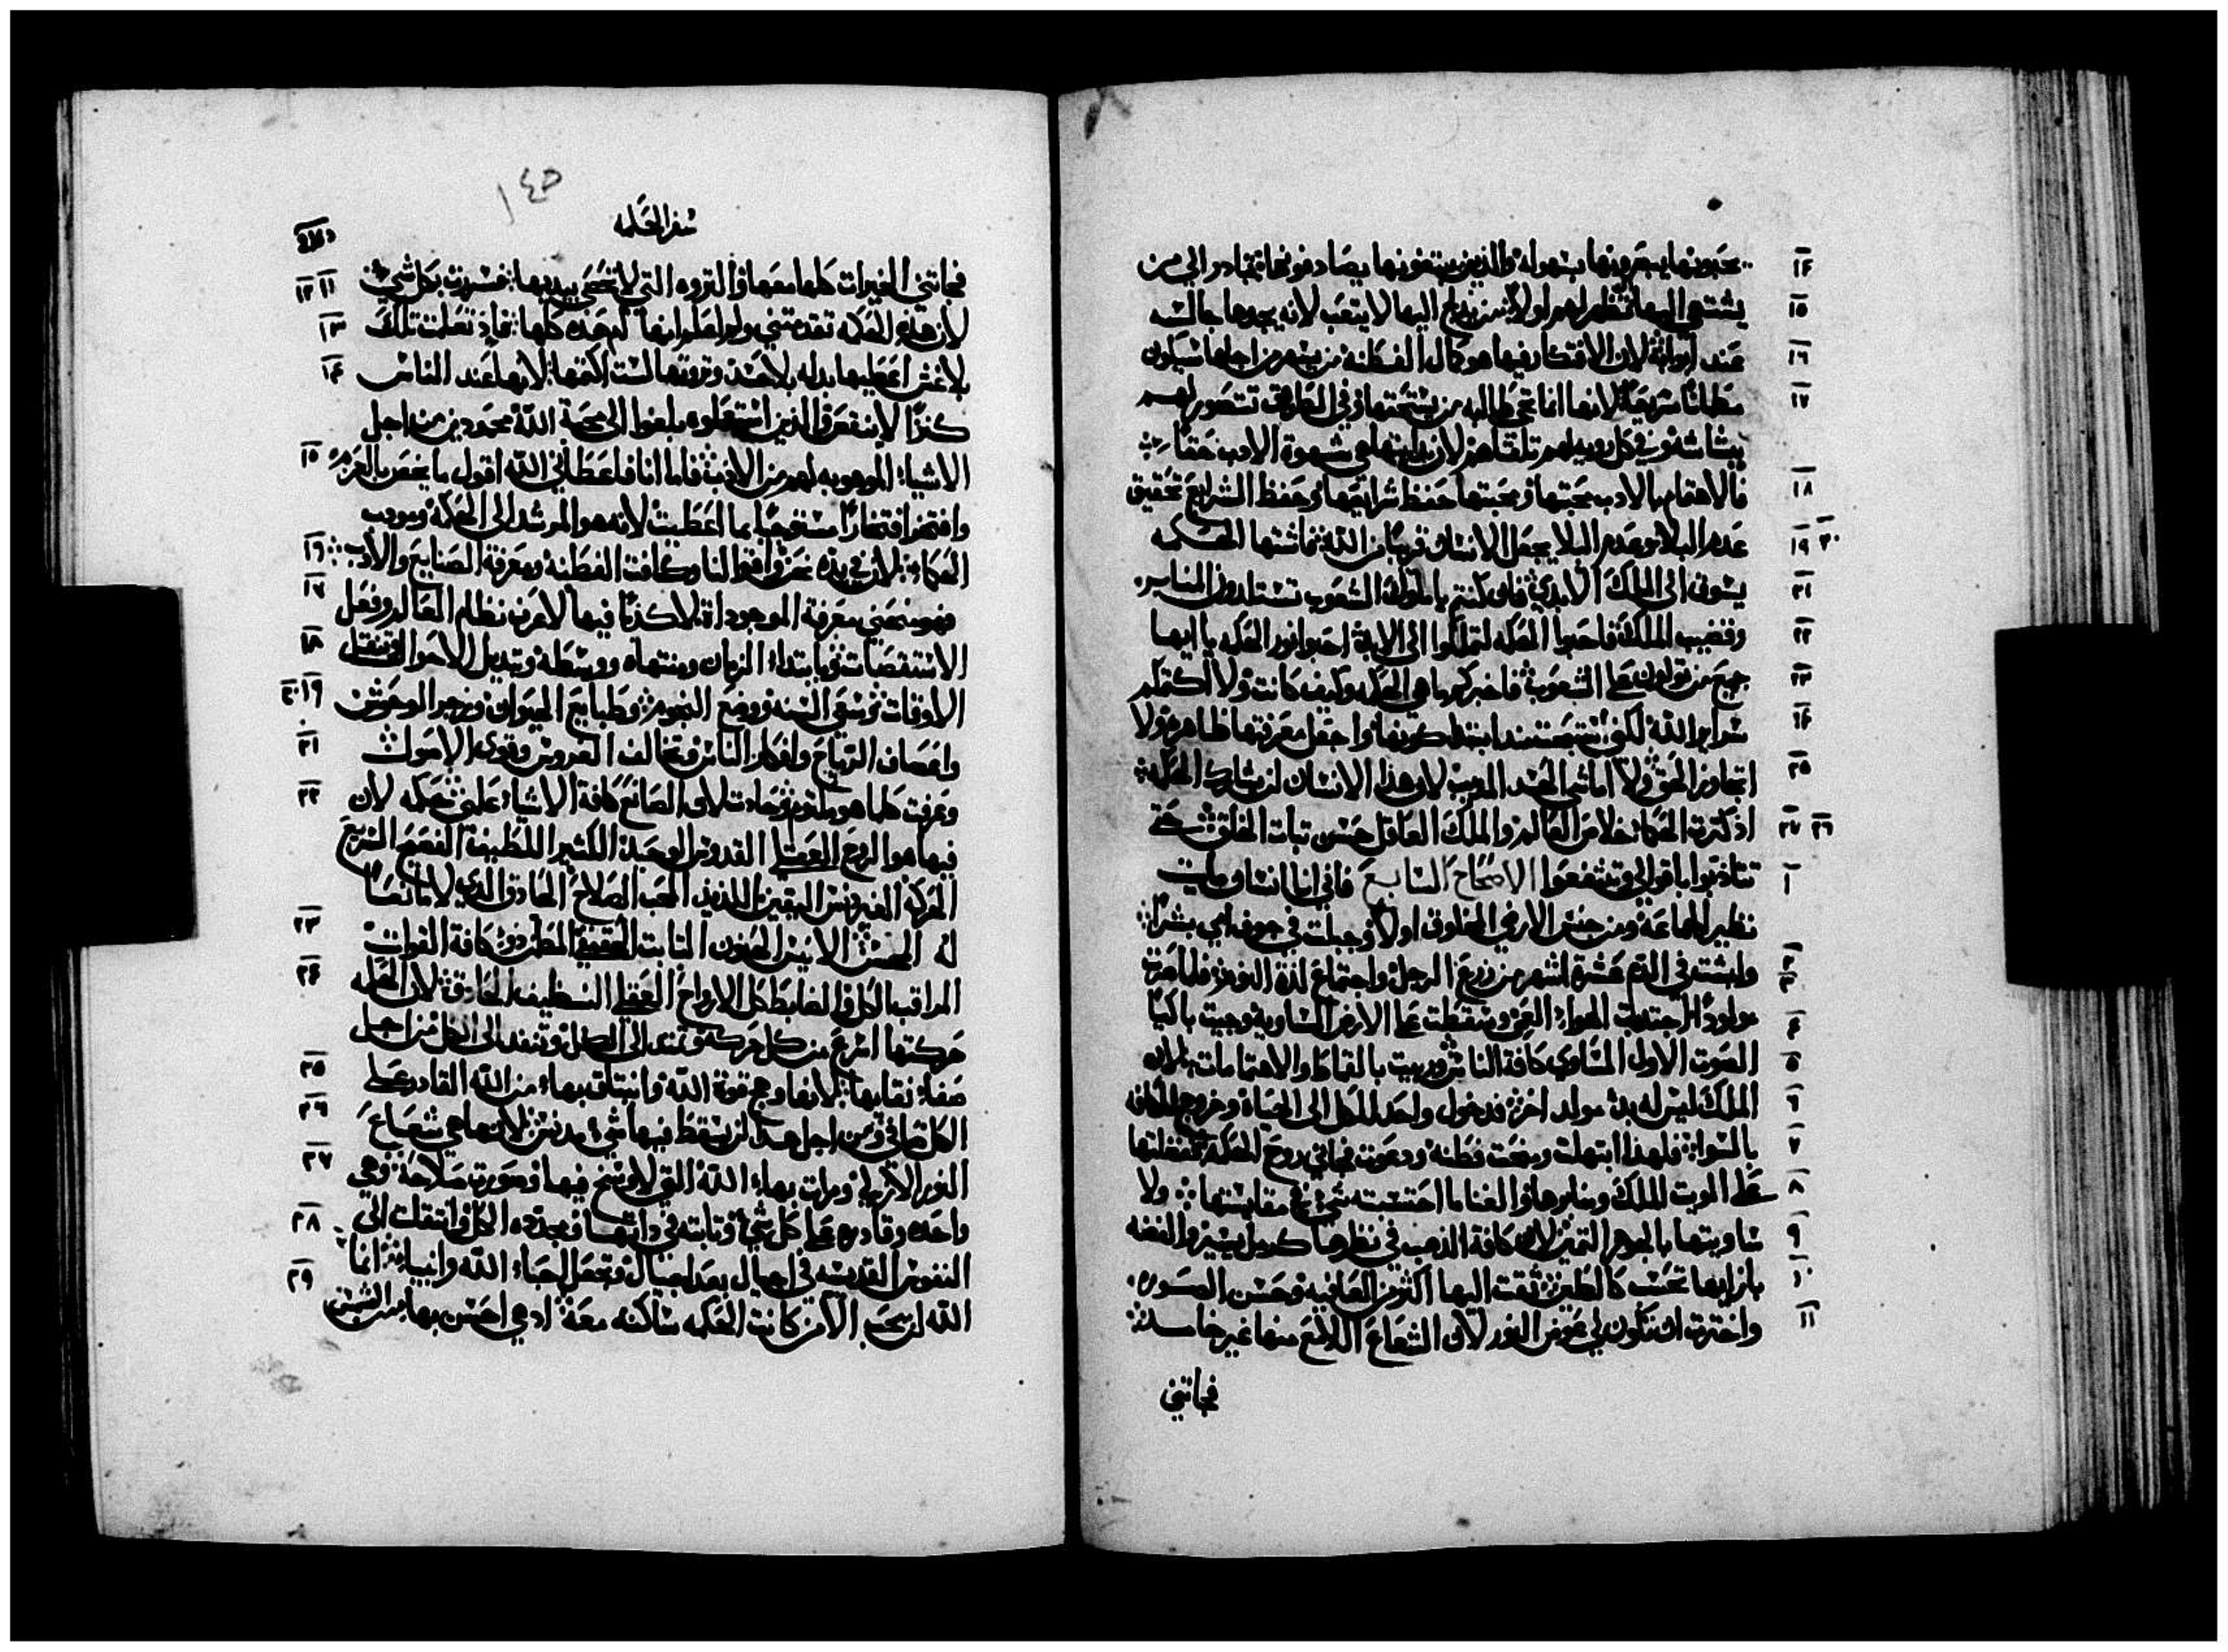 يحبونها يبصرونها بسهوله والذين يبتغونها يصادفونها تبادر الى من
يشتهي اليها لتظهر لهم اولا من يدلج اليها لا يتعب لانه يجدها جالسه
عند ابوابه لان الافتكار فيها هو كمال الفطنه من يسهر من اجلها سيكون
مطمانا سريعا لانها انما تجي طالبه من يستحقها وفي الطرق تتصور لهم
ببشاشه وفي كل رويه لهم تلقاهم لان بدايتها هي شهوة الادب حقا
فالاهتمام بالادب محبتها ومحبتها حفظ شرايعها وحفظ الشرايع تحقيق
عدم البلا وعدم البلا يجعل الانسان قريبا من الله فاشتها الحكمه
يسوق الى الملك الابدي فان كنتم يا ملوك الشعوب تستلذون المنابر
وقضيب الملك فاحبوا الحكمه لتملكوا الى الابد احبوا نور الحكمه يا ايها
جميع من تولون على الشعوب فاخبركم ما هي الحكمه وكيف كانت ولا اكتمكم
سراير الله لكني استبحث من ابتدا كونها واجعل معرفتها ظاهره ولا
اتجاوز الحق ولا اماشي الحسد المذيب لان هذا الانسان لن يشارك الحكمه
اذ كثرت الحكما خلاص العالم والملك العاقل حسن ثبات الخلق حتى
تتادبوا باقوالي وتنتفعوا الاصحاح السابع فاني انا انسان مايت
نظير الجماعه ومن جنس الارضي المخلوق اولا وجبلت في جوف امي بشرا
ولبثت في الدم عشرة اشهر من زرع الرجل واجتماع لذة النوم فلما صرت
مولودا اجتذبت الهواء العمي وسقطت على الارض المتساويه وجيت باكيا
الصوت الاول المتساوي كافة الناس وربيت بالقماط والاهتمامات لان
الملك ليس له بدء مولد اخر فدخول واحد للكل الى الحياة وخروج للكافه
بالسوا فلهذا ابتهلت ومنحت فطنه ودعوت فجاني روح الحكمه ففضلتها
على الموبت الملك ومنابرها والغنا ما احتسبته شيء في مقايستها ولا
ساويتها بالجوهر الثمين لان كافة الذهب في نظرها كرمل يسير والفضه
بازايها تحسب كالطين تقت اليها اكثر من العافيه وحسن الصوره
واخترت ان تكون لي عوض النور لان الشعاع اللامع منها غير خامد
فجاتني
١٤٥
سفر الحكمه
فجاتني الخيرات كلها معها والثروه التي لا تحصى بيديها فسررت بكل شي
لان هذه الحكمه تقدمتني ولم اعلم انها ام هذه كلها فاذ تعلمت تلك
بلا غش اعطيها بدله بلا حسد وثروتها لست اكتمها لانها عند الناس
كنزا لا ينقص والذين استعملوه بلغوا الى محبة الله محمودين من اجل
الاشياء الموهوبه لهم من الادب فاما انا فاعطاني الله اقول ما يخص بالعزم
وافتخر افتخارا مستوجبا بما اعطيت لانه هو المرشد الى الحكمه ومودب
الحكماء لان في يده نحن واقوالنا وكافت الفطنه ومعرفة الصنايع والادب
فهو منحني معرفة الموجوداة لا كذبا فيها لاعرف نظام العالم وفعل
الاستقصات وابتداء الزمان ومنتهاه ووسطه وتبديل الاحوال وتنقل
الاوقات وسقى السنه ووضع النجوم وطبايع الحيوان وزجر الوحوش
واعصاف الرياح وافكار الناس وتخالف الغروس وقوى الاصول
وعرفت كلما هو مكتوم وحادث لان الصانع كافة الاشياء علمني حكمه لان
فيها هو الروح العقلي القدوس الوحيد الكثير اللطيف الفصيح السريع
الحركه الغير دنس اليقين اللذيذ المحب الصلاح الحاذق الذي لا مانعا
له المحسن الانيس الحنون الثابت الحقيقي المطمن ذو كافة القوات
المراقب الكل والضابط كل الارواح العقلي النظيف الحاذق لان الحكمه
حركتها اسرع من كل حركه وتمتد الى الكل وتنفد الى الكل من اجل
صفاء نقايها لانها وهج قوة الله وانبثاق بهاء من الله القادر على
الكل صافي ومن اجل هذا لن يسقط فيها شيء مدنس لانها هي شعاع
النور الازلي ومراة بهاء الله التي لا وسخ فيها وصورت صلاحه وهي
واحده وقادره على كل شي وثابته في ذاتها ومجدده الكل وانتقلت الى
النفوس القديسه في اجيال بعد اجيال وتجعل احباء الله وانبياء انما
الله لن يحب الا من كانت الحكمه ساكنه معه اذ هي احسن بها من الشمس